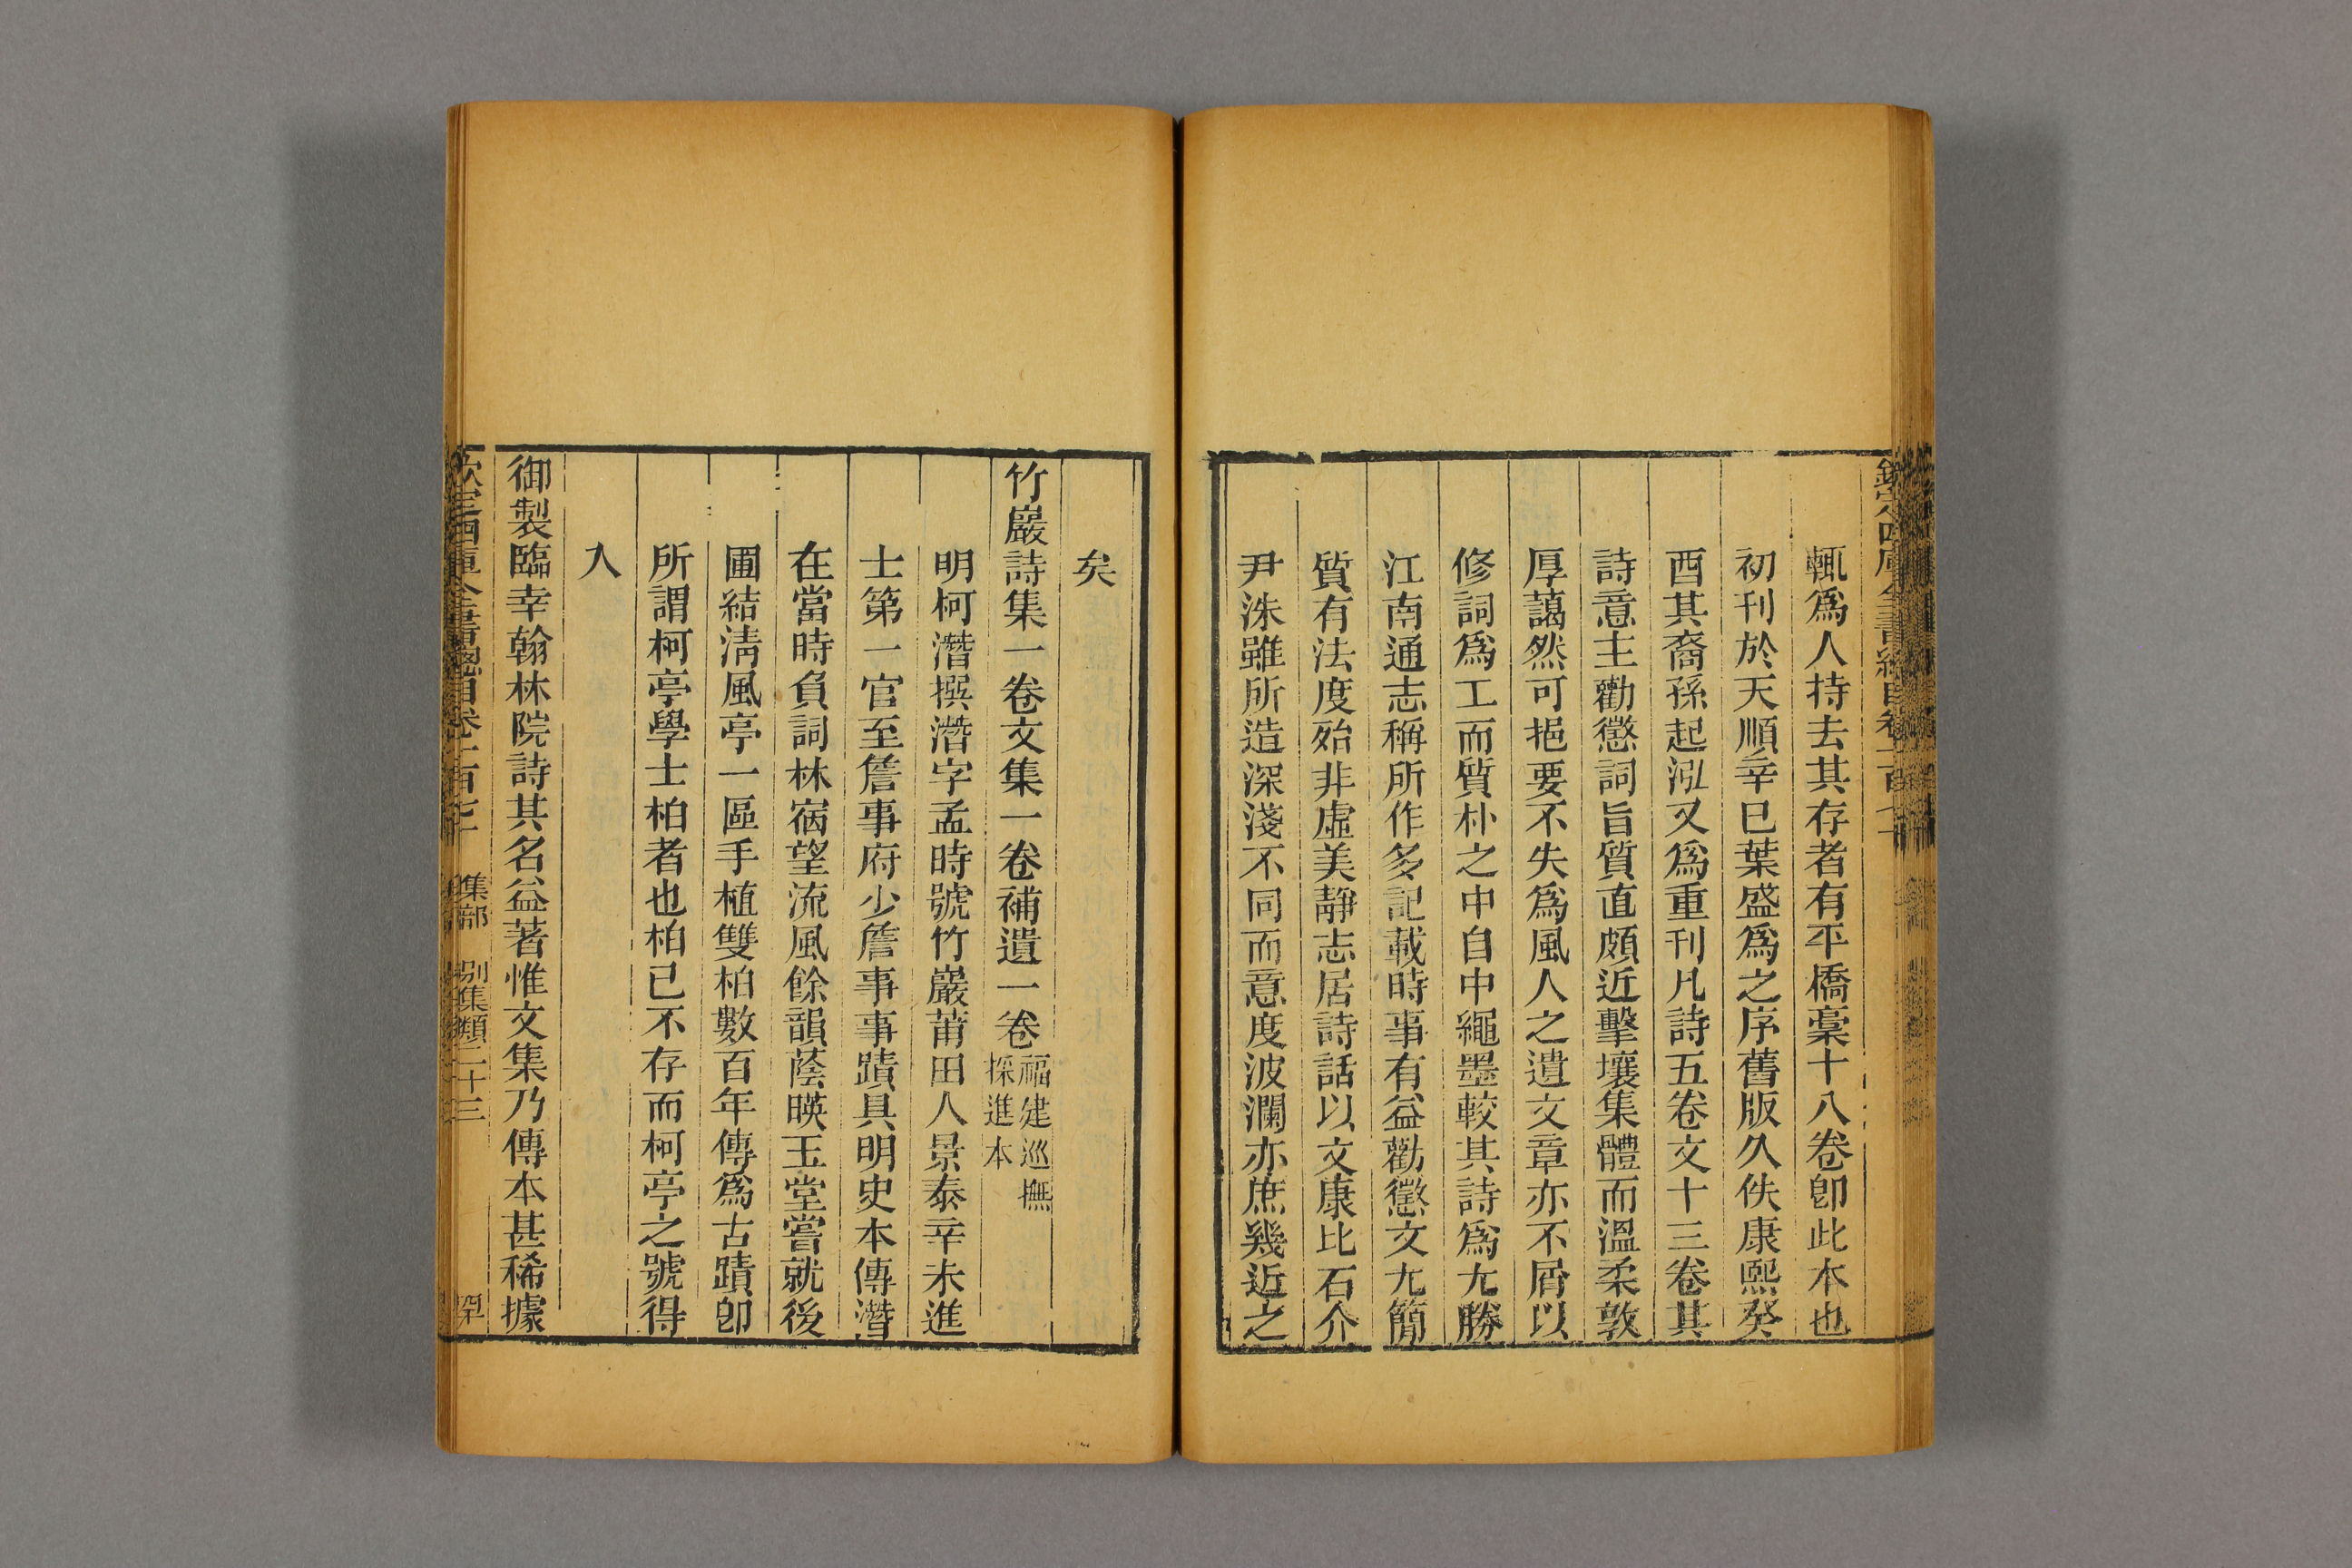 輒爲人持去其存者有平橋稾十八卷卽此本也
初刊於天順辛巳葉盛爲之序舊版久佚康熙癸
酉其裔孫起泓又爲重刊凡詩五卷文十三卷其
詩意主勸懲詞旨質直頗近擊壤集體而溫柔敦
厚藹然可挹要不失爲風人之遺文章亦不屑以
修詞爲工而質朴之中自中繩墨較其詩爲尤勝
江南通志稱所作多記載時事有益勸懲文尤簡
質有法度殆非虛美靜志居詩話以文康比石介
尹洙雖所造深淺不同而意度波瀾亦庶幾近之
矣
竹巖詩集一卷文集一卷補遺一卷福建巡撫採進本
明柯潛撰潛字孟時號竹巖莆田人景泰辛未進
士第一官至詹事府少詹事事蹟具明史本傳潛
在當時負詞林宿望流風餘韻蔭暎玉堂嘗就後
圃結淸風亭一區手植雙柏數百年傳爲古蹟卽
所謂柯亭學士柏者也柏已不存而柯亭之號得
入
御製臨幸翰林院詩其名益著惟文集乃傳本甚稀據
欽定四庫全書總目卷一百七十 集部 別集類二十三